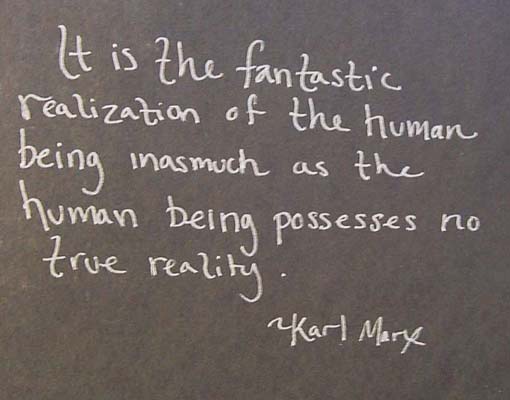 It is the fantastic
realization of the human
being inasmuch as the
human being possesses no
true reality.
~Karl Marx